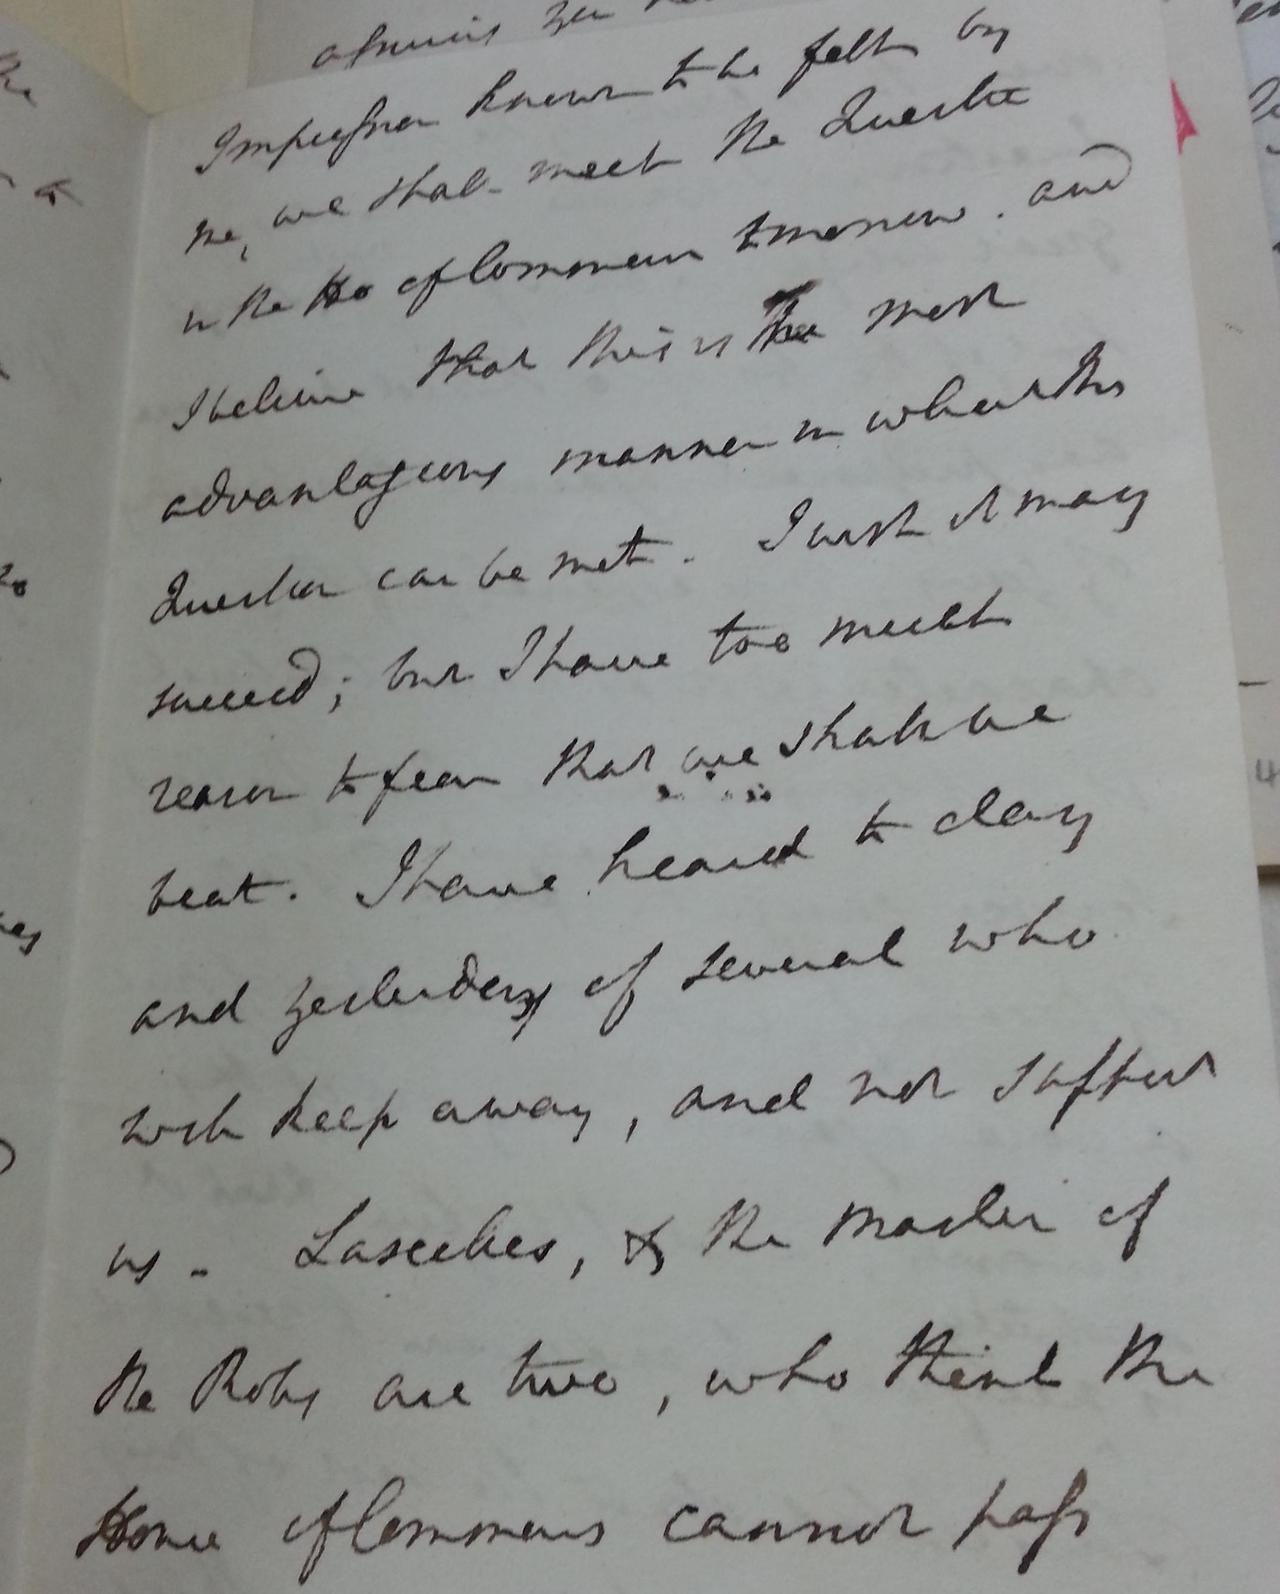 Impression known to be felt by
me, we shall meet the Question
in the Ho of Commons tomorrow. and
I believe that this is the most
advantageous manner in which this
Question can be met. I wish it may
succeed; but I have too much
reason to fear that we shall be
beat. I have heard to day
and yesterday of several who
will keep away, and not support
us - Lascelles, & the Master of
the Rolls are two, who think the
House of Commons cannot pass